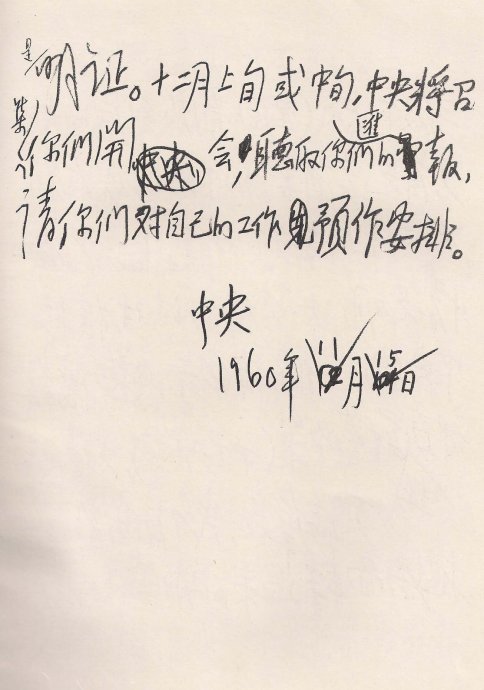 是明证。十二月上旬或中旬,中央將召
集你们開会,聽取你们的匯報,
请你们对自己的工作預作安排。
中央
1960年11月15日